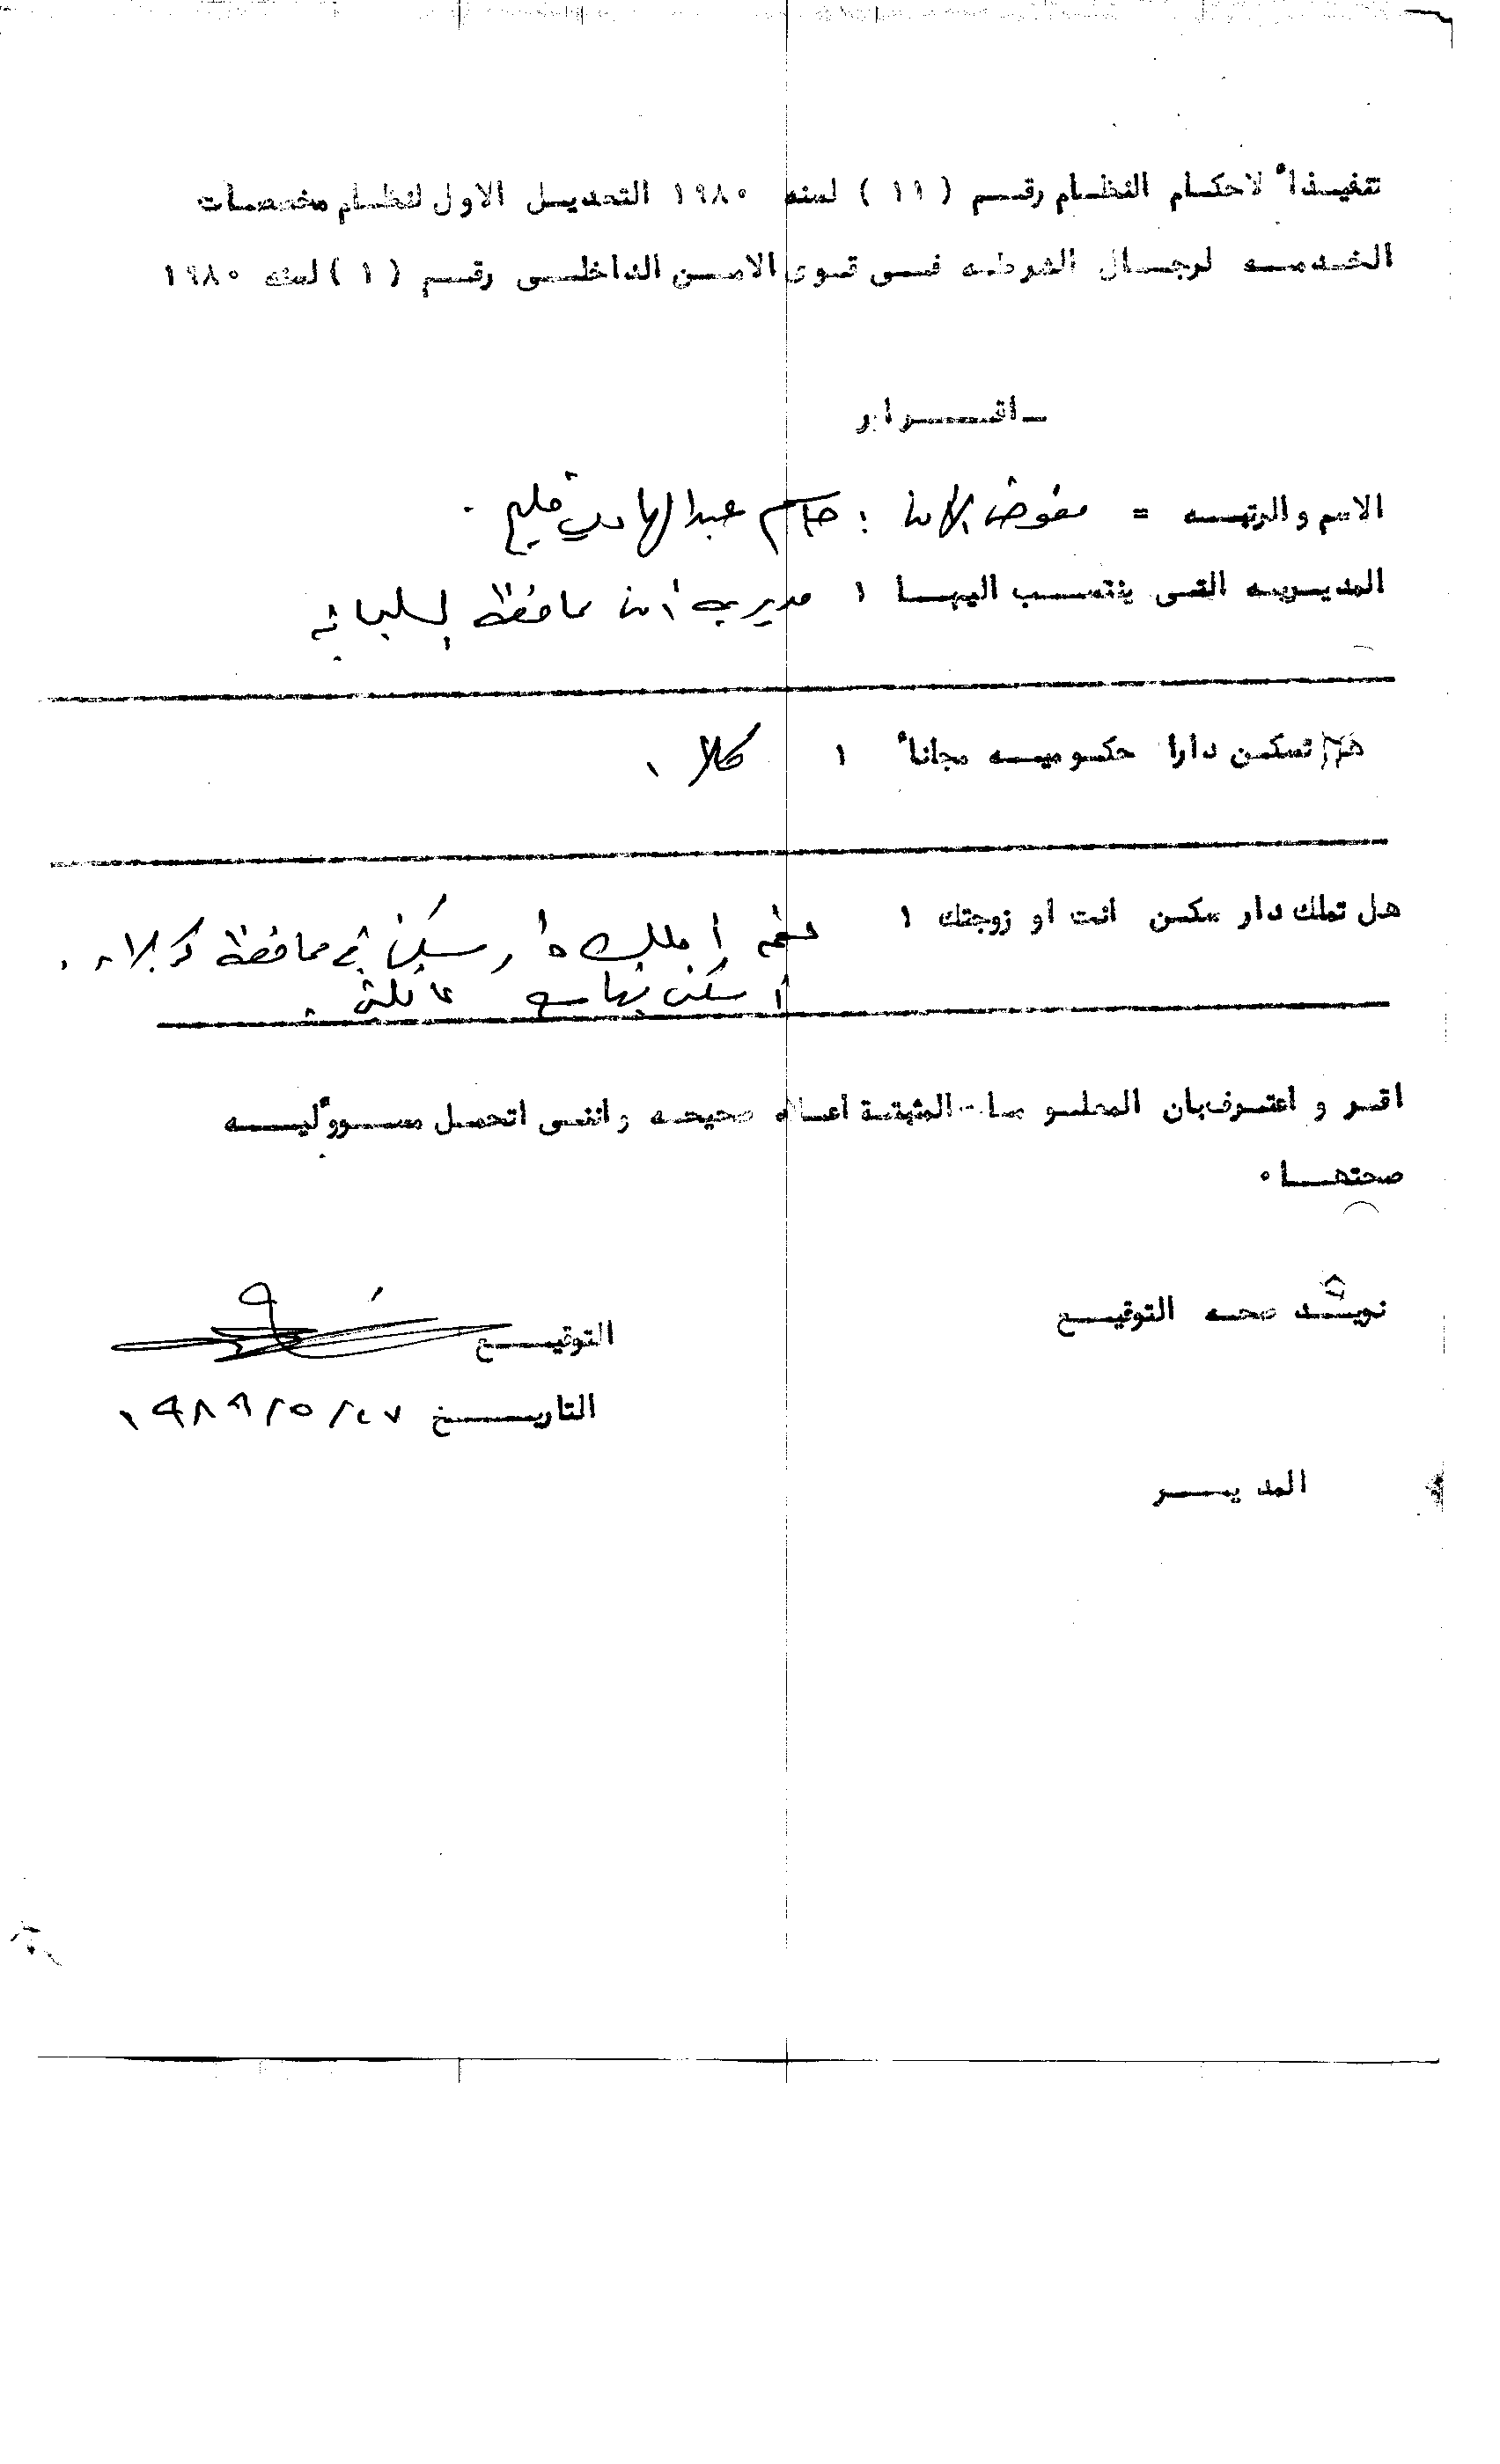 تنفيذاً لاحكام النظام رقم ( ١١ ) لسنه ١٩٨٠ التعديل الاول لنظام مخصصات
الخدمه لرجال الشرطه فى قوى الامن الداخلى رقم ( ١ ) لسنه ١٩٨٠
ـ اقرار
الاسم والرتبه = مفوض الامن : عبد الهادي
المديريه التى ينتسب اليها ١ مديرية امن محافظة السليمانية
هل تسكن دارا حكوميه مجاناً ١ كلا .
هل تملك دار سكن انت او زوجتك ١ نعم املك دار سكن في محافظة كربلاء .
اسكن بها مع عائلتي .
اقر و اعترف بان المعلومات المثبتة اعلاه صحيحه وانني اتحمل مسوؤليه
صحتها ٠
نويد صحه التوقيع
التوقيع
التاريخ ٢٧ / ٥ / ١٩٨٩
المدير